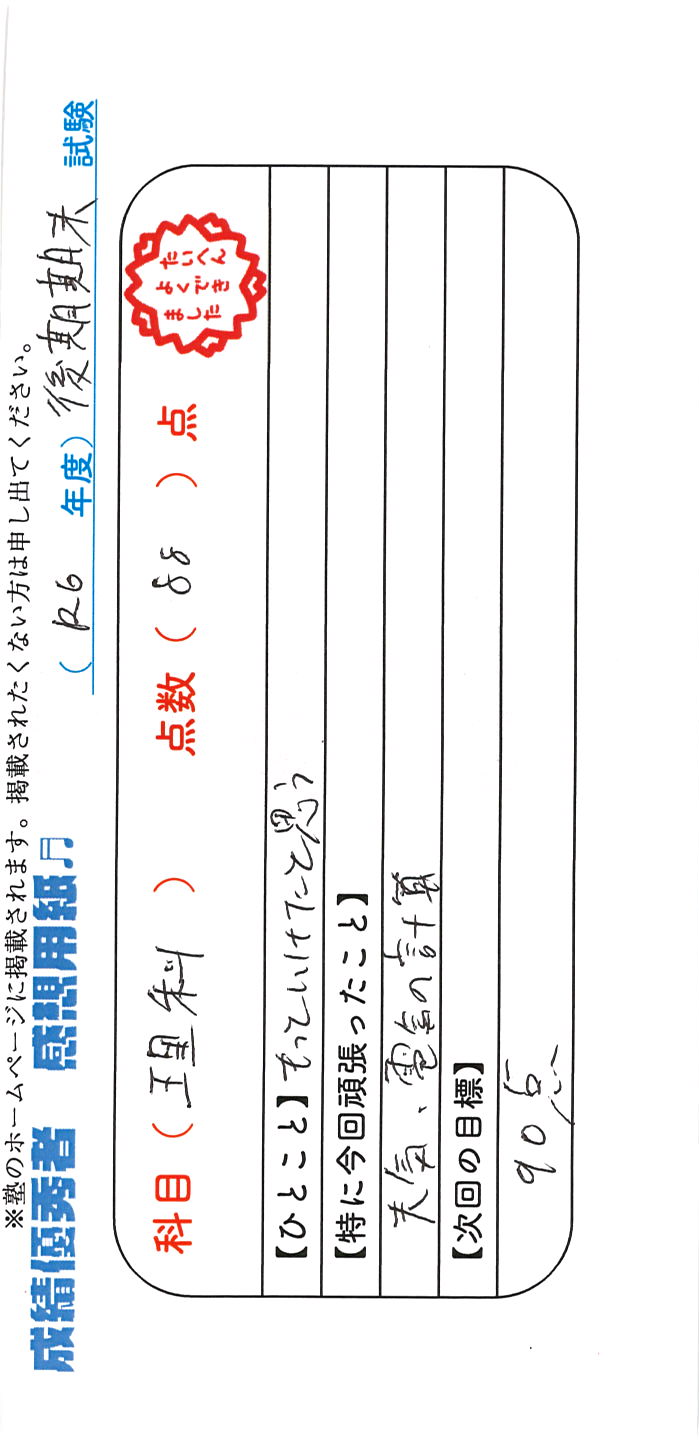 ※塾のホームページに掲載されます。掲載されたくない方は申し出てください。
成績優秀者 感想用紙♬ (R6 年度) 後期期末 試験
科目 ( 理科 ) 点数 ( 88 ) 点
たいへん
よくでき
ました
【ひとこと】もっていけたと思う
【特に今回頑張ったこと】
天気、電気の計算
【次回の目標】
90点